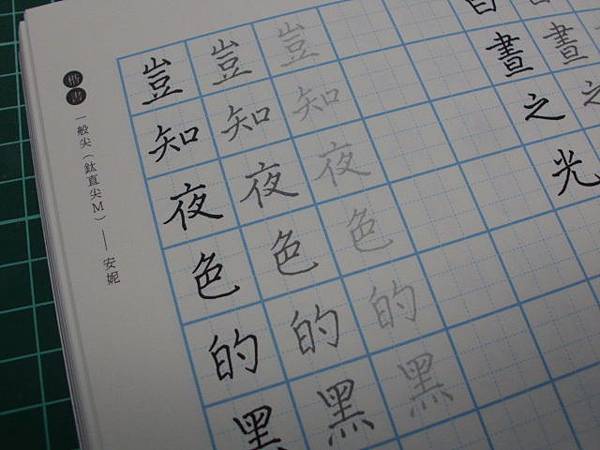 晝
晝之光
豈知夜色的黑
豈知夜色的黑
豈知夜色的黑
楷書
一般尖（鈦直尖M）——安妮